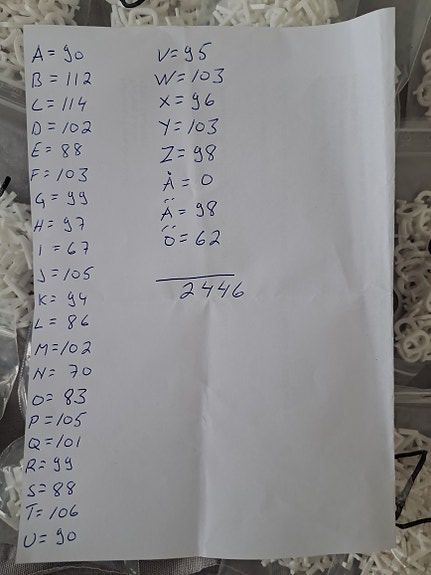 A = 90
B = 112
C = 114
D = 102
E = 88
F = 103
G = 99
H = 97
I = 67
J = 105
K = 94
L = 86
M = 102
N = 70
O = 83
P = 105
Q = 101
R = 99
S = 88
T = 106
U = 90
V = 95
W = 103
X = 96
Y = 103
Z = 98
Å = 0
Ä = 98
Ö = 62
2446